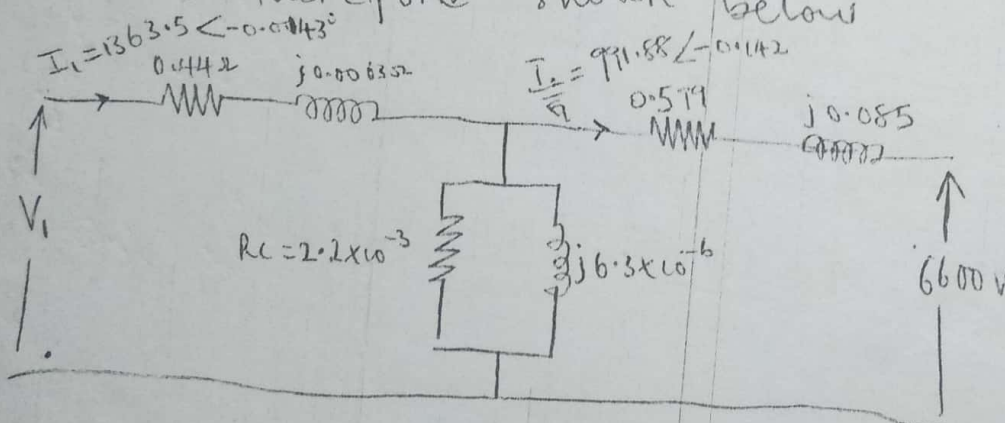 shown below
I₁=1363.5<-0.00143°
0.44Ω
j0.0063Ω
I₂/a = 991.88∠-0.142
0.579
j0.085
V₁
RC = 2.2×10⁻³
j6.3×10⁻⁶
6600 V